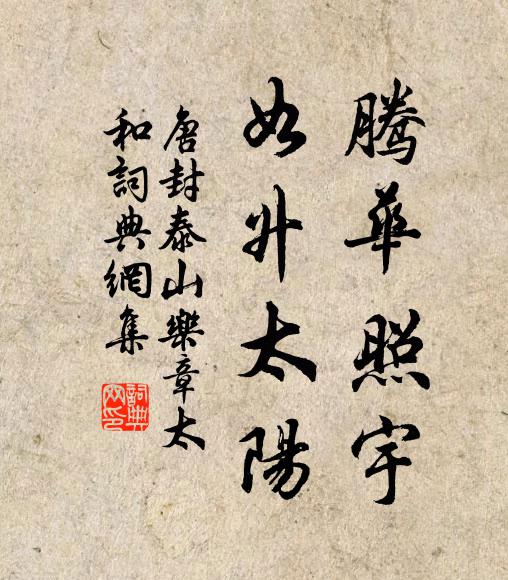 騰華照宇
如升太陽
唐封泰山樂章太
和詞典網集
詞典
网印